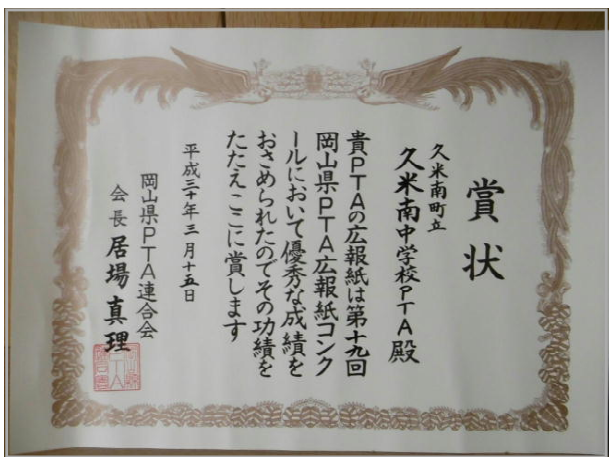 賞状
久米南町立
久米南中学校PTA殿
貴PTAの広報紙は第十九回
岡山県PTA広報紙コンク
ールにおいて優秀な成績を
おさめられたのでその功績を
たたえここに賞します
平成三十年三月十五日
岡山県PTA連合会
会長 居場真理